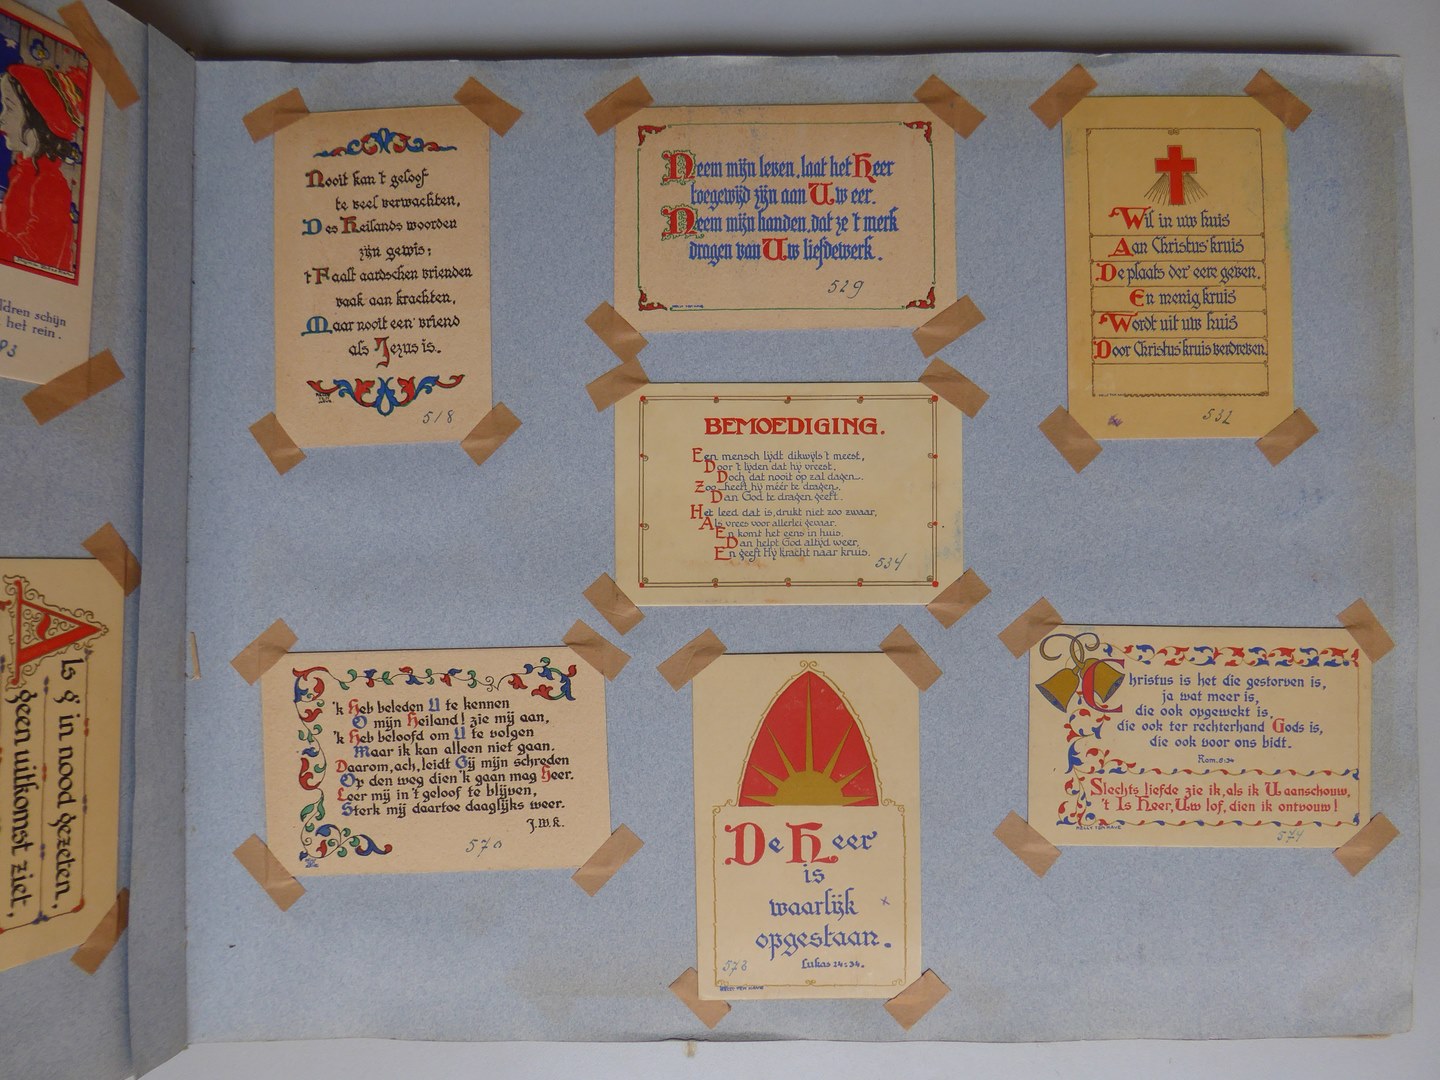 ldren schijn
het rein.
93
Als g' in nood gezeten,
geen uitkomst ziet,
Nooit kan 't geloof
te veel verwachten,
Des Heilands woorden
zijn gewis;
't Faalt aardschen vrienden
vaak aan krachten,
Maar nooit een vriend
als Jezus is.
518
Neem mijn leven, laat het Heer
toegewijd zijn aan Uw eer.
Neem mijn handen, dat ze 't merk
dragen van Uw liefdewerk.
529
Wil in uw huis
Aan Christus' kruis
De plaats der eere geven,
En menig kruis
Wordt uit uw huis
Door Christus' kruis verdreven.
532
BEMOEDIGING.
Een mensch lijdt dikwijls 't meest,
Door 't lijden dat hij vreest,
Doch dat nooit op zal dagen.
Zoo heeft hij méér te dragen,
Dan God te dragen geeft.
Het leed dat is, drukt niet zoo zwaar,
Als vrees voor allerlei gevaar.
En komt het eens in huis,
Dan helpt God altijd weer,
En geeft Hij kracht naar kruis.
534
'k Heb beleden U te kennen
O mijn Heiland! zie mij aan,
'k Heb beloofd om U te volgen
Maar ik kan alleen niet gaan.
Daarom, ach, leidt Gij mijn schreden
Op den weg dien 'k gaan mag Heer.
Leer mij in 't geloof te blijven,
Sterk mij daartoe daaglijks weer.
J.W.K.
570
De Heer
is
waarlijk
opgestaan.
Lukas 24:34.
573
NELLY TEN HAVE
Christus is het die gestorven is,
ja wat meer is,
die ook opgewekt is,
die ook ter rechterhand Gods is,
die ook voor ons bidt.
Rom. 8:34
Slechts liefde zie ik, als ik U aanschouw,
't Is Heer, Uw lof, dien ik ontvouw!
NELLY TEN HAVE
574